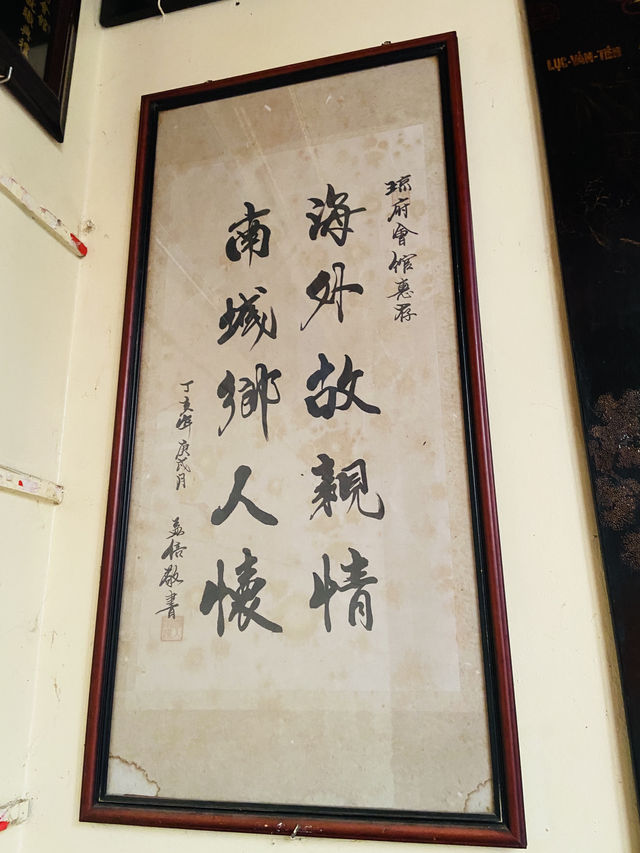 琼府會館惠存
海外故親情
南城鄉人懷
丁亥年庚戌月 敬書
LỤC-VÂN-TIÊN